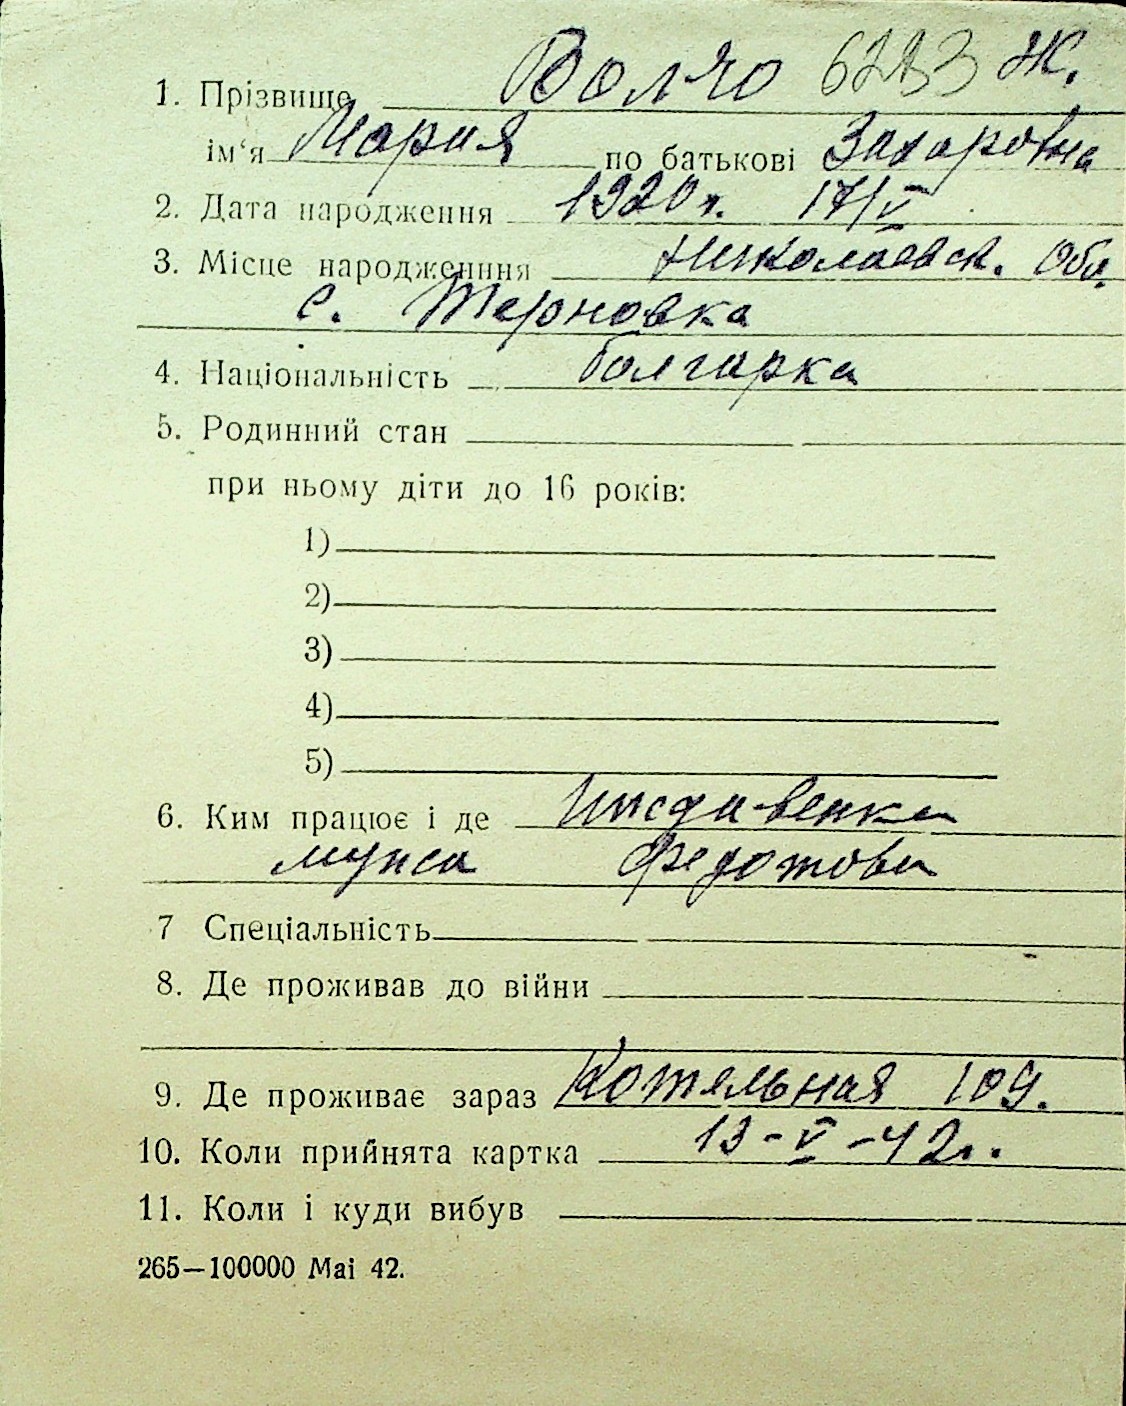 1. Прізвище Волчо 6283 Ж.
ім‘я Мария по батькові Захаровна
2. Дата народження 1920 г. 17/V
3. Місце народженння Николаевск. Обл.
с. Терновка
4. Національність болгарка
5. Родинний стан
при ньому діти до 16 років:
1)
2)
3)
4)
5)
6. Ким працює і де Иждивенка
мужа Федотова
7 Спеціальність
8. Де проживав до війни
9. Де проживає зараз Котельная 109.
10. Коли прийнята картка 13-V-42г.
11. Коли і куди вибув
265—100000 Маі 42.